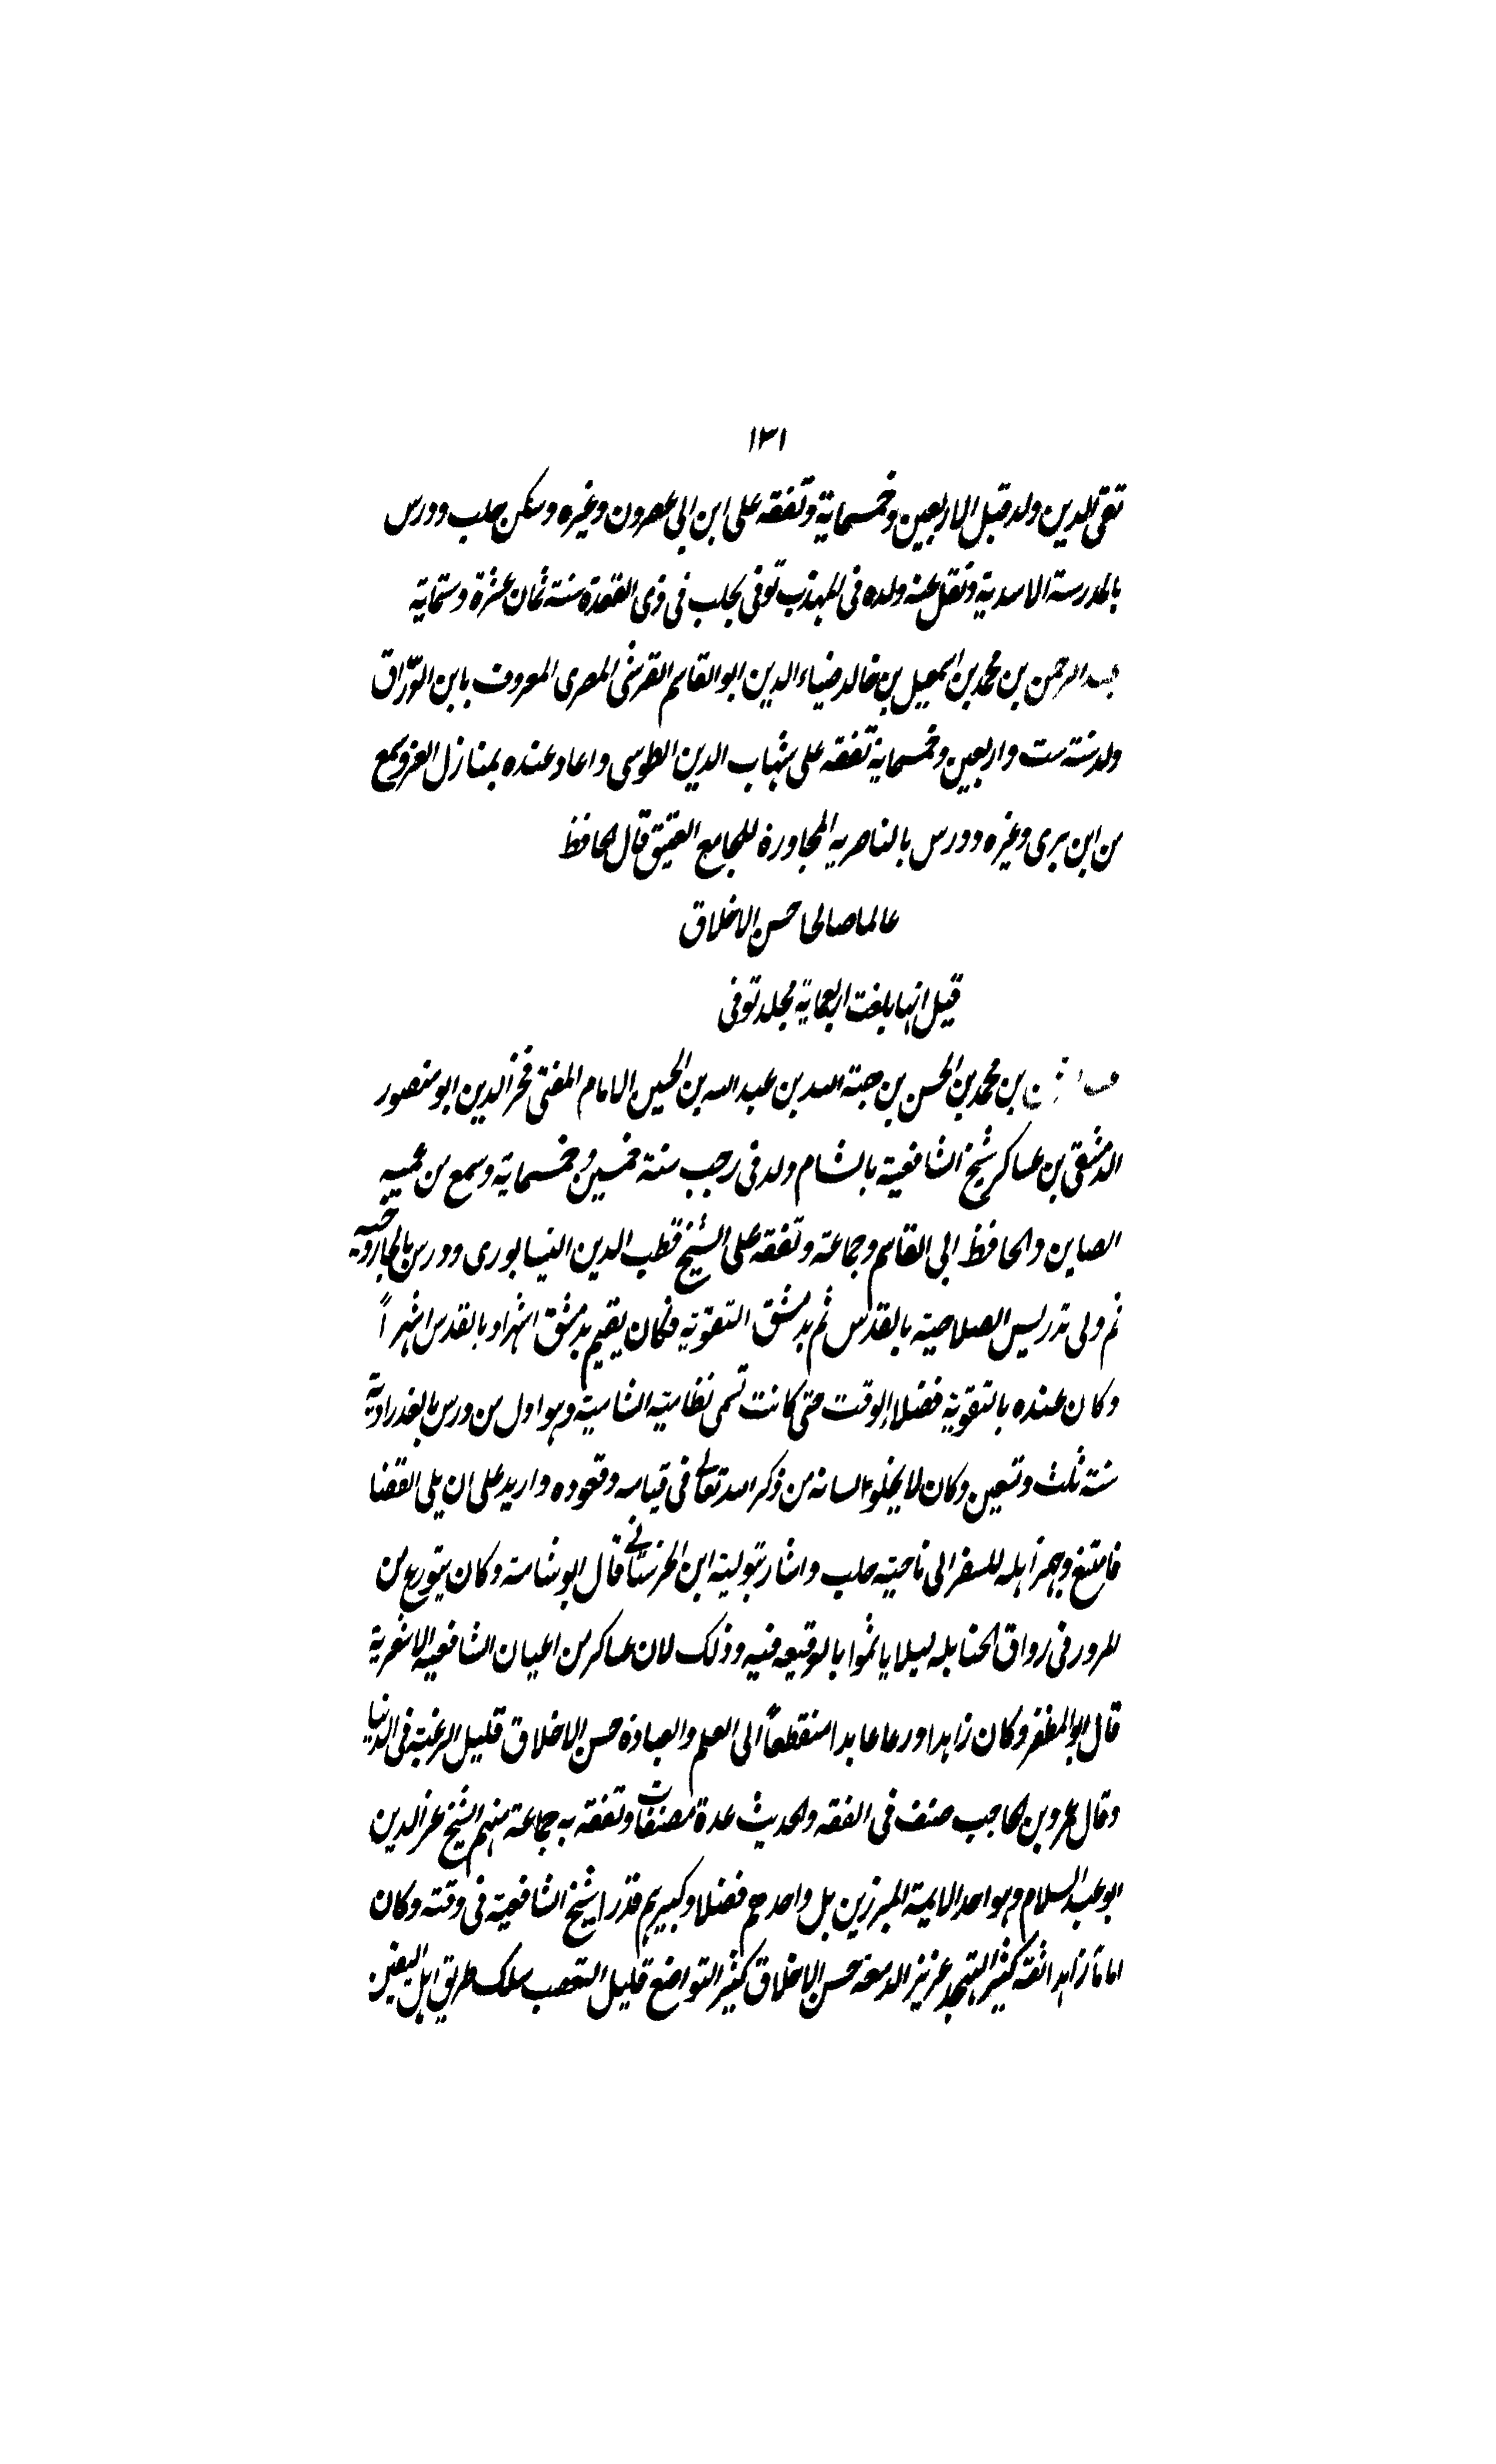 ١٣١
تقى الدين ولد قبل الاربعين وخمسماية وتفقه على ابن ابى عصرون وغيره وسكن حلب ودرس
بالمدرسة الاسدية ونقل عنه ولده فى المهذب توفى بحلب فى ذى القعدة سنة ثمان عشرة وستماية
عبد الرحمن بن محمد بن اسمعيل بن خالد ضياء الدين ابو القاسم القرشى المصرى المعروف بابن الورّاق
ولد سنة ست واربعين وخمسماية تفقه على شهاب الدين الطوسى واعاد عنده بمنازل العز وسمع
من ابن برى وغيره ودرس بالناصرية المجاورة للجامع العتيق قال الحافظ
عالما صالحا حسن الاخلاق
قيل انها بلغت اربعماية مجلد توفى
بن محمد بن الحسن بن هبة الله بن عبد الله بن الحسين الامام المفتى فخر الدين ابو منصور
الدمشقى بن عساكر شيخ الشافعية بالشام ولد فى رجب سنة خمسين وخمسماية وسمع من عميه
الصاين والحافظ ابى القاسم وجماعة وتفقه على الشيخ قطب الدين النيسابورى ودرس بالجاروخية
ثم ولى تدريس الصلاحية بالقدس ثم بدمشق التقوية فكان يقيم بدمشق اشهرا وبالقدس اشهراً
وكان عنده بالتقوية فضلاء الوقت حتى كانت تسمى نظامية الشامية وهو اول من درس بالعذراوية
سنة ثلث وتسعين وكان لا يخلو لسانه من ذكر الله تعالى فى قيامه وقعوده واريد على ان يلى القضا
فامتنع وجهز اهله للسفر الى ناحية حلب واشار بتولية ابن الحرستانى قال ابو شامة وكان يتورع من
المرور فى رواق الحنابلة ليلا ياثموا بالوقيعة فيه وذلك لان عساكر من اعيان الشافعية الاشعرية
قال ابو المظفر وكان زاهدا ورعا عابدا منقطعاً الى العلم والعبادة حسن الاخلاق قليل الرغبة فى الدنيا
وقال عمرو بن الحاجب صنف فى الفقه والحديث عدة مصنفات وتفقه به جماعة منهم الشيخ عز الدين
ابو عبد السلام وهو احد الايمة المبرزين بل واحدهم فضلا وكبيرهم قدرا شيخ الشافعية فى وقته وكان
اماماً زاهدا ثقة كثير التهجد غزير الدمعة حسن الاخلاق كثير التواضع قليل التعصب سلك طريق اهل اليقين